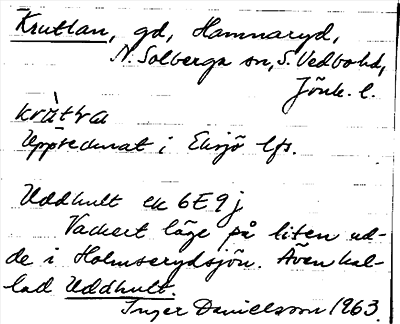 Kruttan, gd, Hamnaryd,
N. Solberga sn, S. Vedbo hd,
Jönk. l.
kràtra
Upptecknat i Eksjö lfs.
Uddhult ek 6E9j
Vackert läge på liten ud-
de i Holmserydsjön. Även kal-
lad Uddhult.
Inger Danielsson 1963.